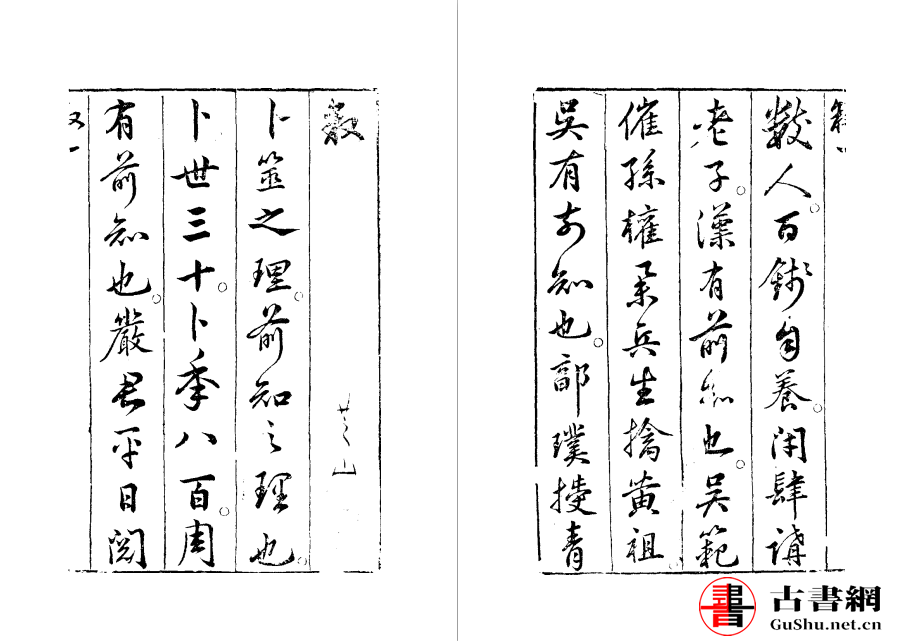 數
卜筮之理前知之理也
卜世三十卜秊八百周
有前知也嚴君平日閱
數人百錢自養閉肆講
老子漢有前知也吳範
催孫權兵生擒黃祖
吳有前知也郭璞授青
古書網
GuShu.net.cn